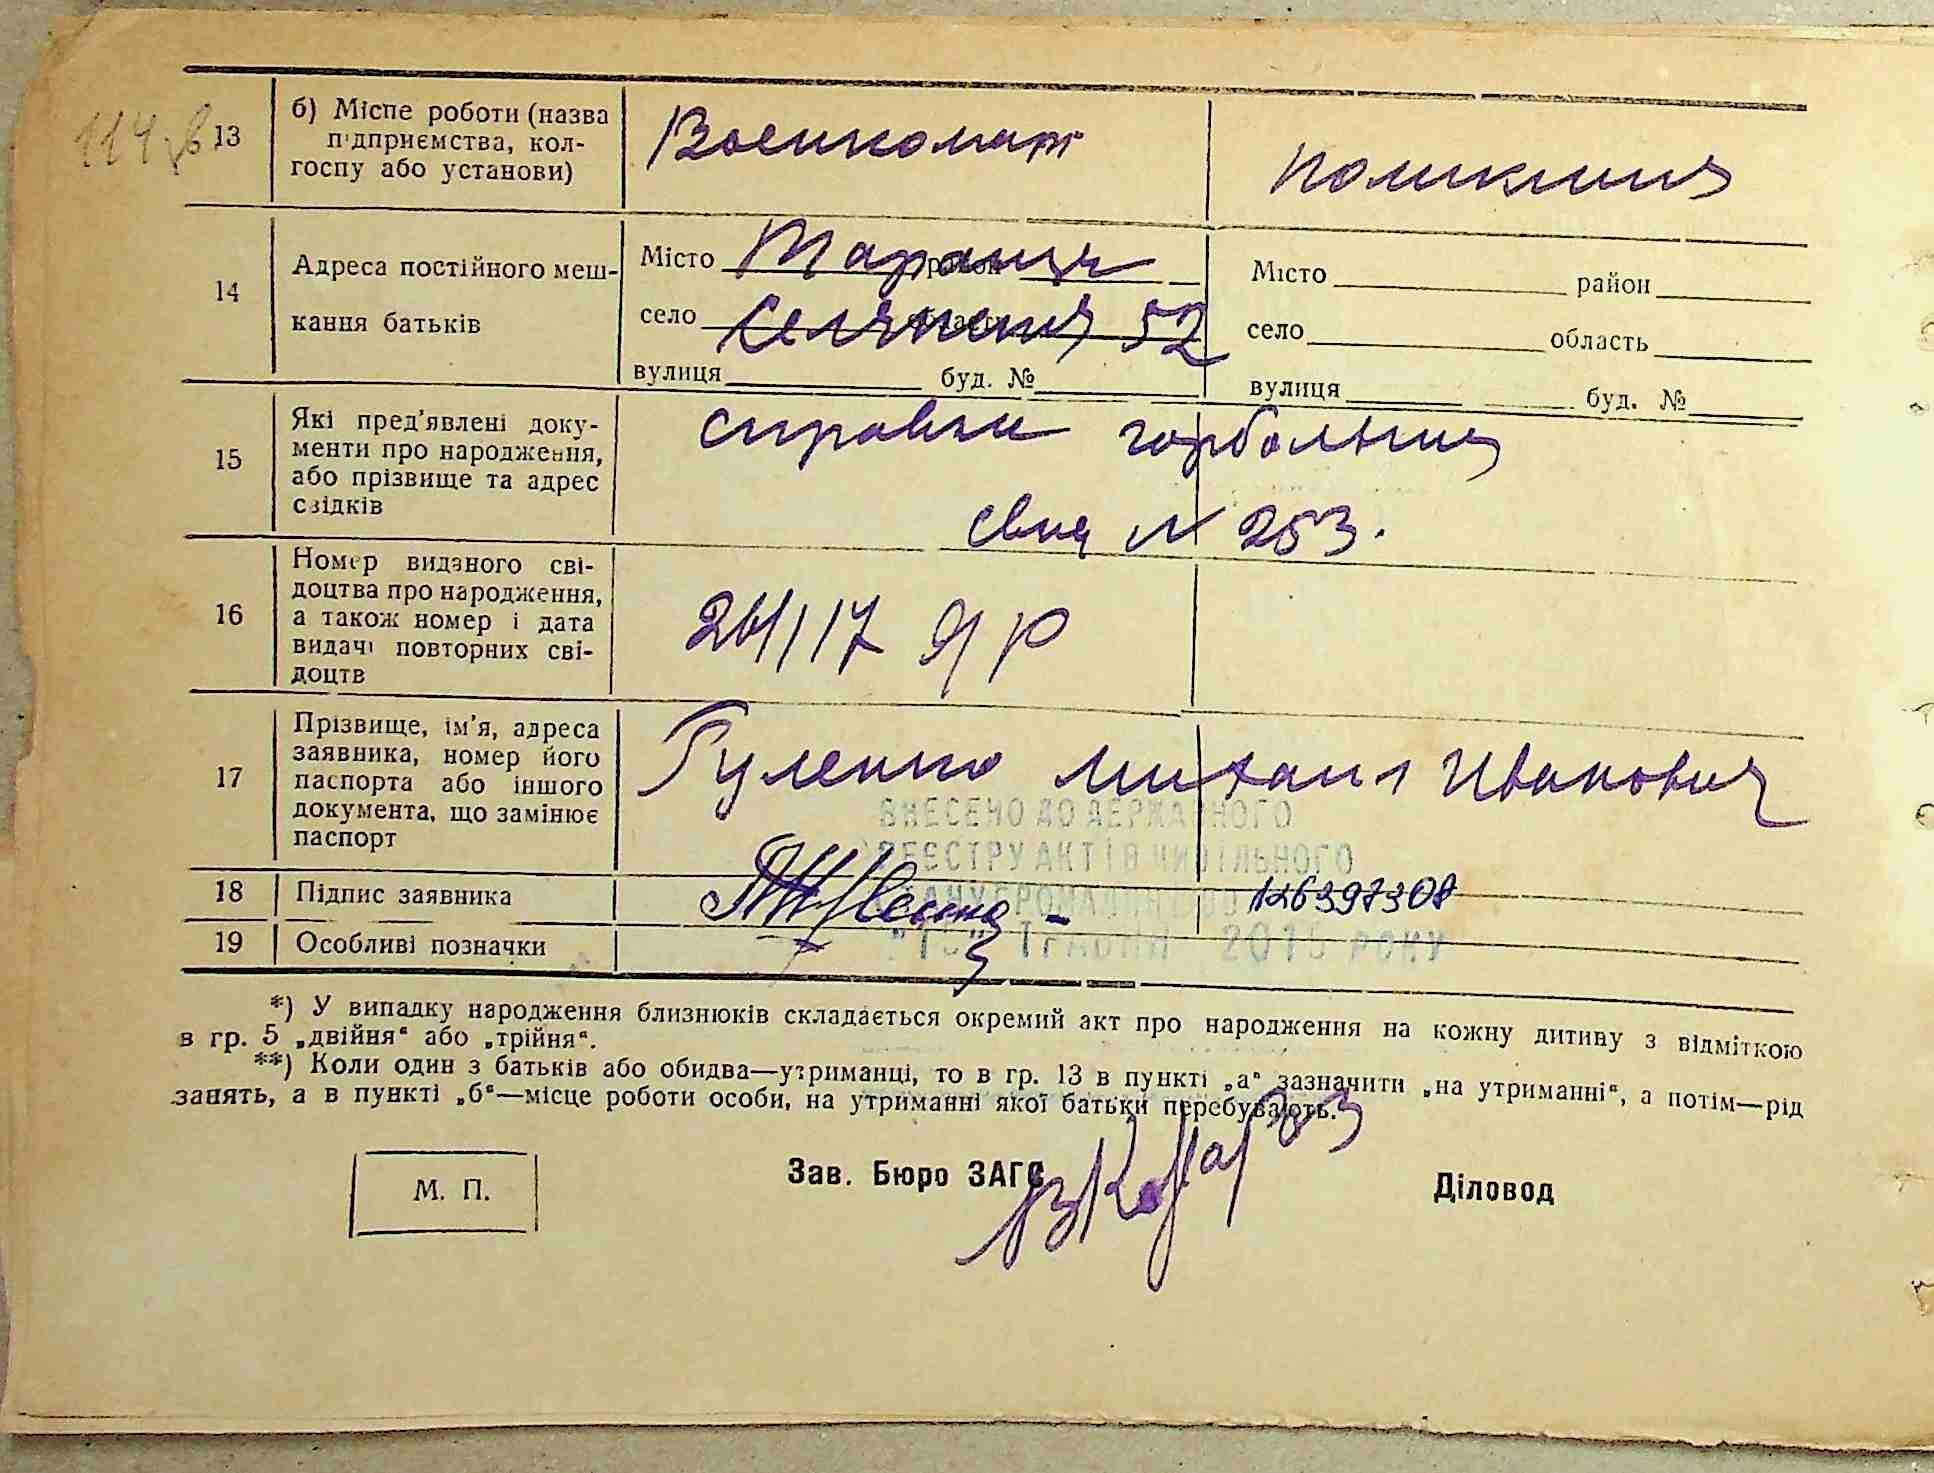 114 зв
13
б) Місце роботи (назва
підприємства, кол-
госпу або установи)
Военкомат
поликлин
14
Адреса постійного меш-
кання батьків
Місто
район
село
область
52
вулиця буд. №
Місто район
село область
вулиця буд. №
15
Які пред'явлені доку-
менти про народження,
або прізвище та адрес
свідків
справки горбольниц
свид № 253.
16
Номер виданого сві-
доцтва про народження,
а також номер і дата
видачі повторних сві-
доцтв
17
Прізвище, ім'я, адреса
заявника, номер його
паспорта або іншого
документа, що замінює
паспорт
Гуленко Михаил Иванович
ВНЕСЕНО ДО ДЕРЖАВНОГО
РЕЄСТРУ АКТІВ ЦИВІЛЬНОГО
18
Підпис заявника
СТАНУ ГРОМАДЯН
19
Особливі позначки
ТРАВНЯ РОКУ
*) У випадку народження близнюків складається окремий акт про народження на кожну дитину з відміткою
в гр. 5 „двійня“ або „трійня“.
**) Коли один з батьків або обидва—утриманці, то в гр. 13 в пункті „а“ зазначити „на утриманні“, а потім—рід
занять, а в пункті „б“—місце роботи особи, на утриманні якої батьки перебувають.
М. П.
Зав. Бюро ЗАГС
Діловод